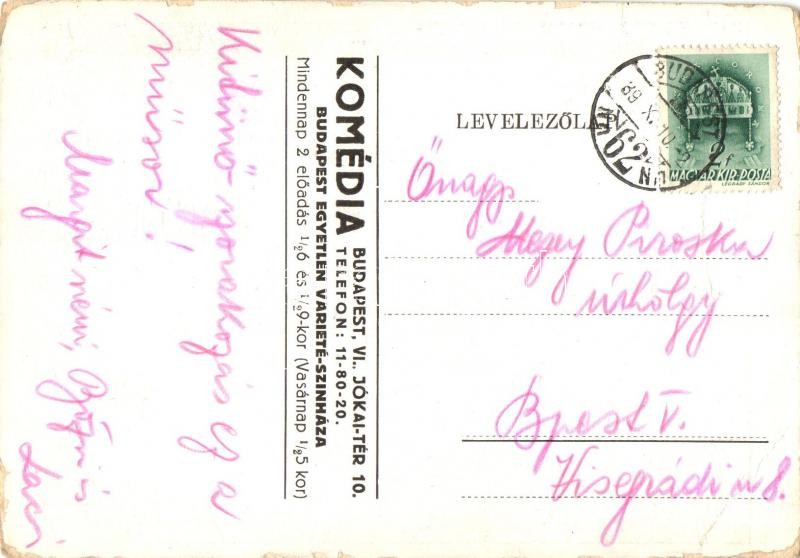 Kitűnő szórakozás ez a
műsor!
Margit néni, és
Laci
KOMÉDIA
BUDAPEST, VI., JÓKAI-TÉR 10.
TELEFON: 11-80-20.
BUDAPEST EGYETLEN VARIETÉ-SZINHÁZA
Mindennap 2 előadás ½6 és ½9-kor (Vasárnap ½5 kor)
LEVELEZŐLAP
BUDAPEST
62
2f
MAGYAR KIR. POSTA
LÉGRÁDY SÁNDOR
Önagys.
Piroska
úrhölgy
Bpest V.
Visegrádi u 8.